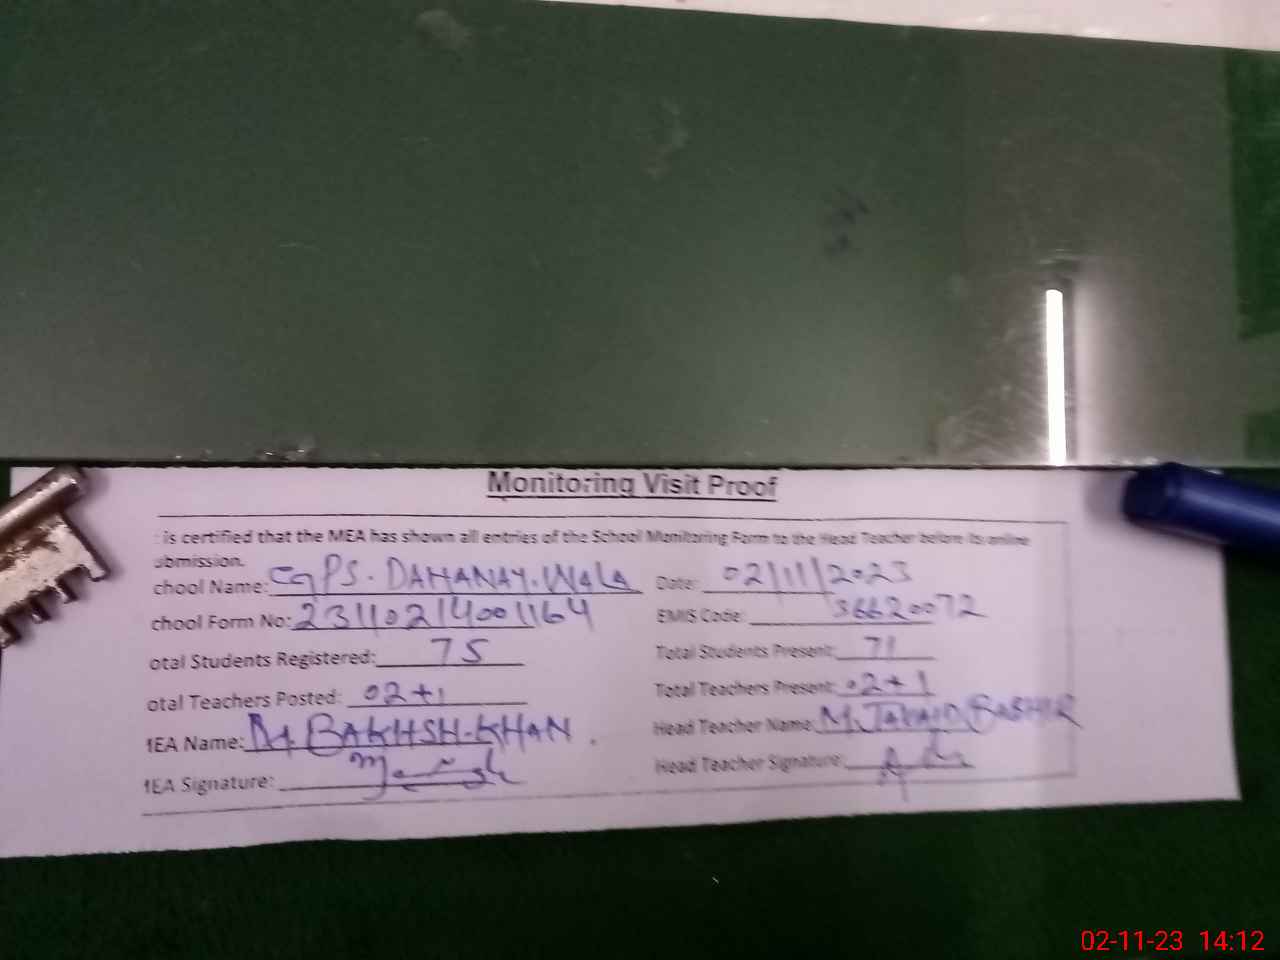 Monitoring Visit Proof
is certified that the MEA has shown all entries of the School Monitoring Form to the Head Teacher before its online
ubmission.
chool Name: GPS. DAHANAY. WALA Date: 02/11/2023
chool Form No: 23110214001164 EMIS Code: 36620072
otal Students Registered: 75 Total Students Present: 71
otal Teachers Posted: 02+1 Total Teachers Present: 02+1
MEA Name: M. BAKHSH-KHAN Head Teacher Name: M. JAVAID BASHIR
MEA Signature: Head Teacher Signature:
02-11-23 14:12